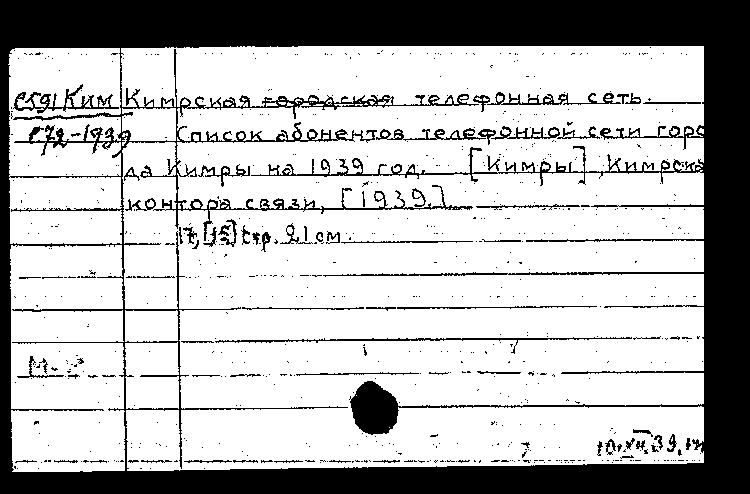 С591 Ким Кимрская городская телефонная сеть.
С72-1939 Список абонентов телефонной сети горо
да Кимры на 1939 год. [Кимры], Кимрска
контора связи, [1939.]
17, [15] стр. 21 см.
М-
10.XII.39.